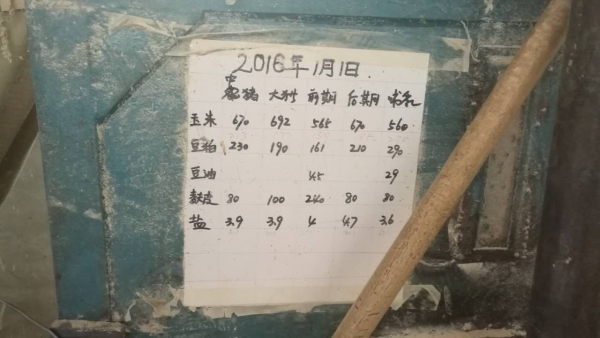 2016年1月1日
中猪 大猪 前期 后期
玉米 670 692 565 670 560
豆粕 230 190 161 210 290
豆油 45 29
麸皮 80 100 240 80 80
盐 3.9 3.9 4 4.7 3.6